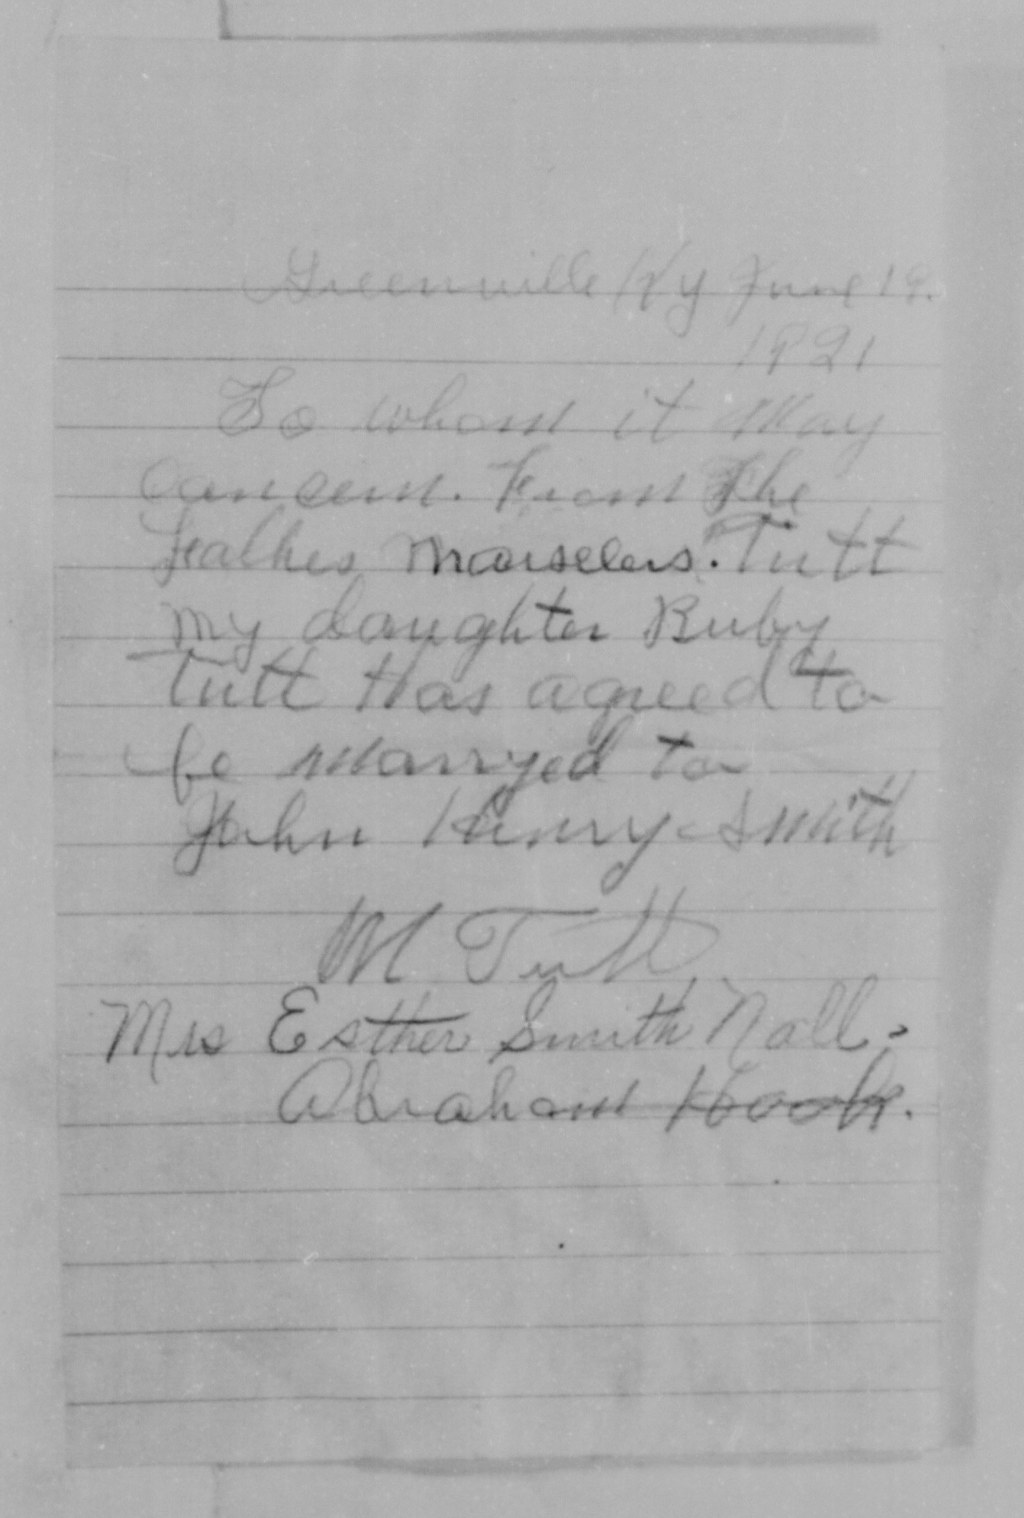 Greenville Ky June 19.
1921
To whom it May
concern. From The
Feather Marselers. Tutt
my daughter Ruby
Tutt Has agreed to
be marryed to
John Henry Smith
M Tutt
Mrs Esther Smith Nall.
Abraham Hook.